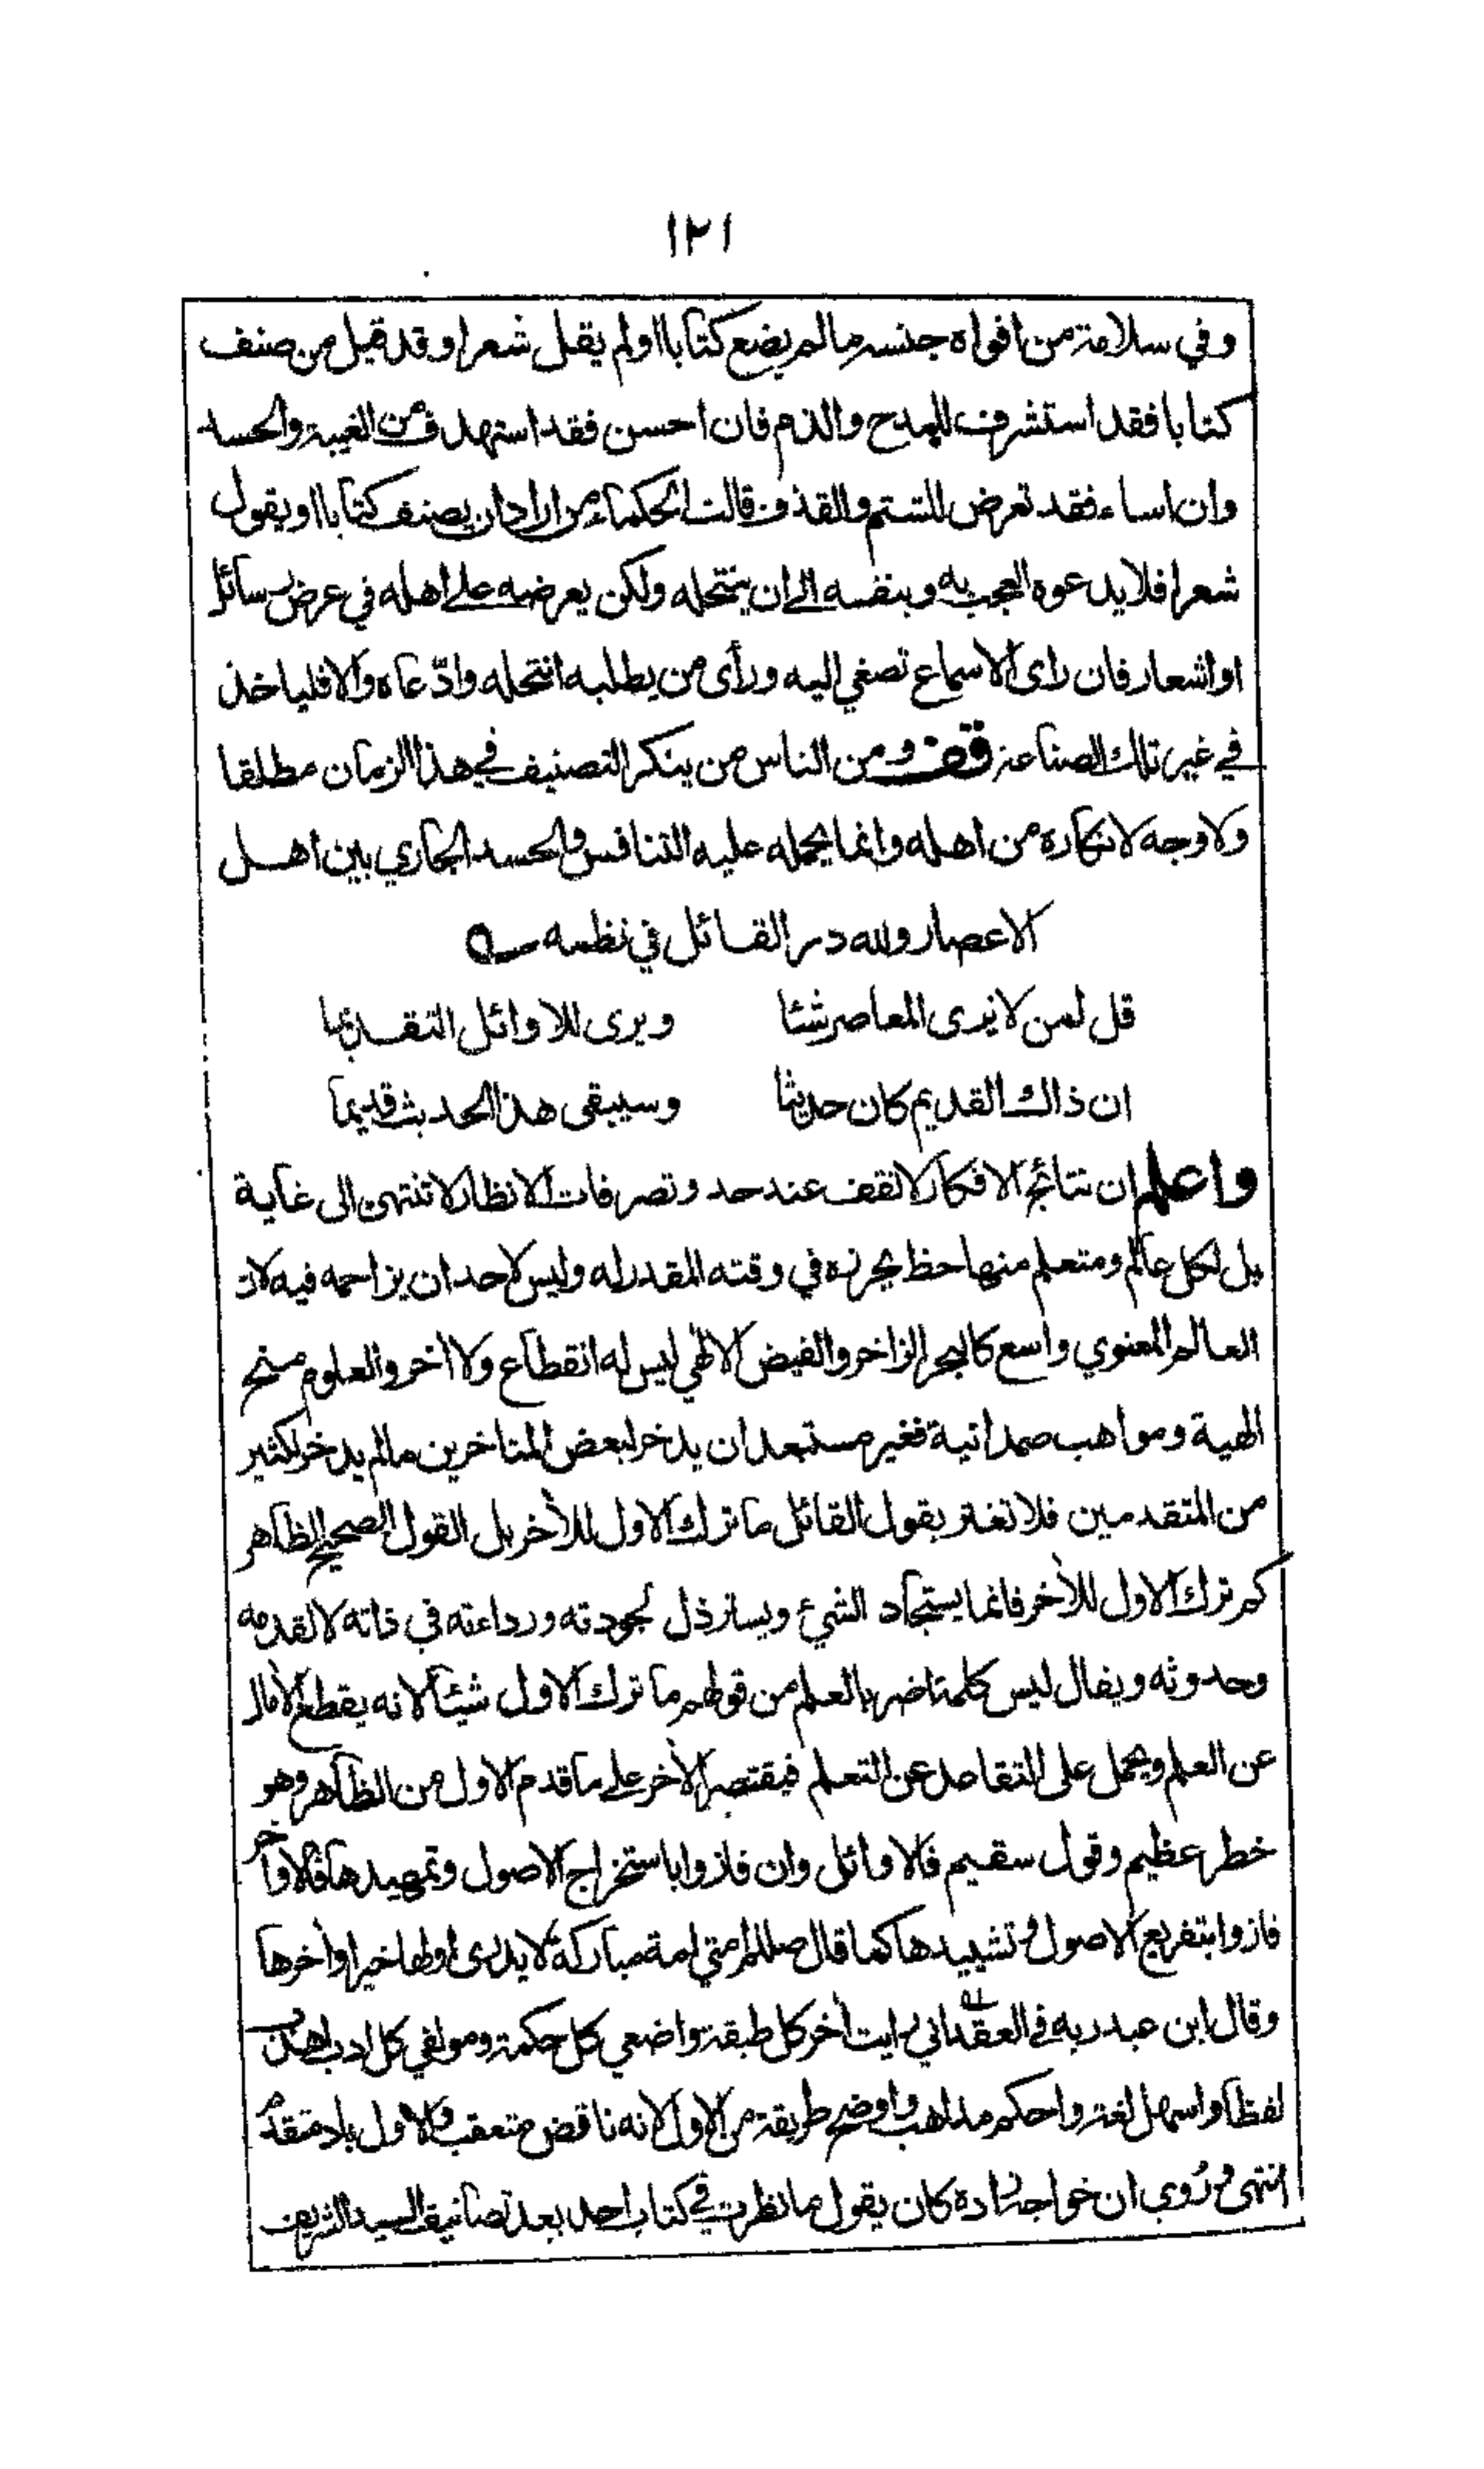 ١٢١
وفي سلامة من افواه جنسه ما لم يضع كتابا او لم يقل شعرا وقد قيل من صنف
كتابا فقد استشرف للمدح والذم فان احسن فقد استهدف من الغيبة والحسد
وان اساء فقد تعرض للشتم والقذف قالت الحكماء من اراد ان يصنف كتابا او يقول
شعرا فلا يدعوه العجب به وبنفسه الى ان ينتحله ولكن يعرضه على اهله في عرض رسائل
او اشعار فان راى الاسماع تصغي اليه ورأى من يطلبه انتحله وادّعاه والا فلياخذ
في غير تلك الصناعة قف ومن الناس من ينكر التصنيف في هذا الزمان مطلقا
ولا وجه لانكاره من اهله وانما يحمله عليه التنافس والحسد الجاري بين اهل
الاعصار ولله در القائل في نظمه
قل لمن لا يرى المعاصر شئا ويرى للاوائل التقديما
ان ذاك القديم كان حديثا وسيبقى هذا الحديث قديما
واعلم ان نتائج الافكار لا تقف عند حد وتصرفات الانظار لا تنتهى الى غاية
بل لكل عالم ومتعلم منها حظ يحرزه في وقته المقدر له وليس لاحد ان يزاحمه فيه لان
العالم المعنوي واسع كالبحر الزاخر والفيض الالهي ليس له انقطاع ولا اخر والعلوم منح
الهية ومواهب صمدانية فغير مستبعد ان يدخر لبعض المتاخرين ما لم يدخر لكثير
من المتقدمين فلا تغتر بقول القائل ما ترك الاول للأخر بل القول الصحيح الظاهر
كم ترك الاول للأخر فانما يستجاد الشيء ويسترذل لجودته ورداءته في ذاته لا لقدمه
وحدوثه ويقال ليس كلمة اضر بالعلم من قولهم ما ترك الاول شيئا لانه يقطع الآمال
عن العلم ويحمل على التقاعد عن التعلم فيقتصر الأخر على ما قدم الاول من الظاهر وهو
خطر عظيم وقول سقيم فالاوائل وان فازوا باستخراج الاصول وتمهيدها فالاواخر
فازوا بتفريع الاصول وتشييدها كما قال صللم امتي امة مباركة لا يدرى اولها خير او أخرها
وقال ابن عبد ربه في العقد اني رايت أخر كل طبقة واضعي كل حكمة ومولفي كل ادب اهذب
لفظا واسهل لغة واحكم مذاهب واوضح طريقة من الاول لانه ناقض متعقب والاول باد متقدم
انتهى وروي ان خواجه زاده كان يقول ما نظرت في كتاب احد بعد تصانيف السيد الشريف